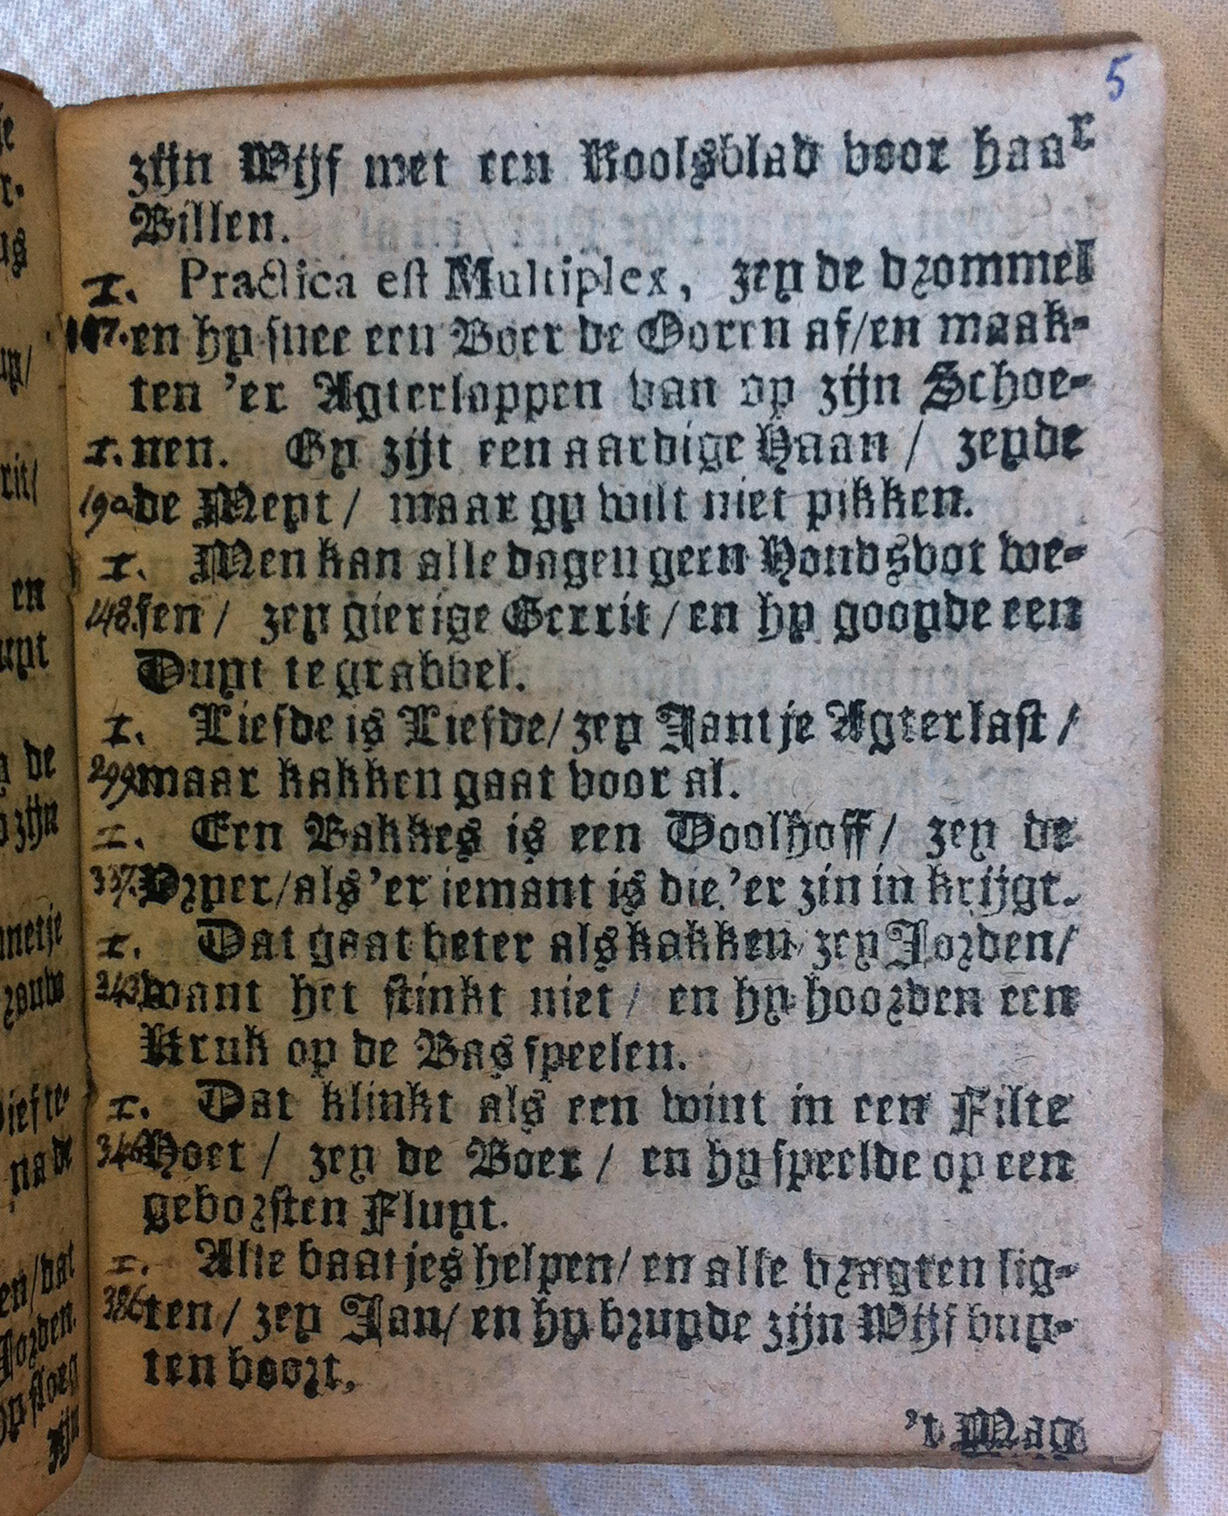 5
zijn Wijf met een Koolsblad voor haar
Billen.
I. Practica est Multiplex, zey de drommel
107. en hy snee een Boer de Ooren af/en maak-
ten 'er Agterlappen van op zijn Schoe-
I. nen. Gy zijt een aardige Haan / zeyde
190 de Meyt / maar gy wilt niet pikken.
I. Men kan alle dagen geen Hondsvot we-
148. sen / zey gierige Gerrit / en hy gooyde een
Duyt te grabbel.
I. Liefde is Liefde/ zey Jantje Agterlast /
299 maar kakken gaat voor al.
I. Een Bakkes is een Doolhoff / zey de
337. Dzyer/als 'er iemant is die 'er zin in krijgt.
I. Dat gaat beter als kakken zey Jorden/
343 want het stinkt niet / en hy hoorden een
Kruk op de Bas speelen.
I. Dat klinkt als een wint in een Filte
346 Hoet / zey de Boer / en hy speelde op een
geborsten Fluyt.
I. Alle baatjes helpen/ en alle vragten lig-
386 ten / zey Jan/ en hy bruyde zijn Wijf buy-
ten boort,
't Mag